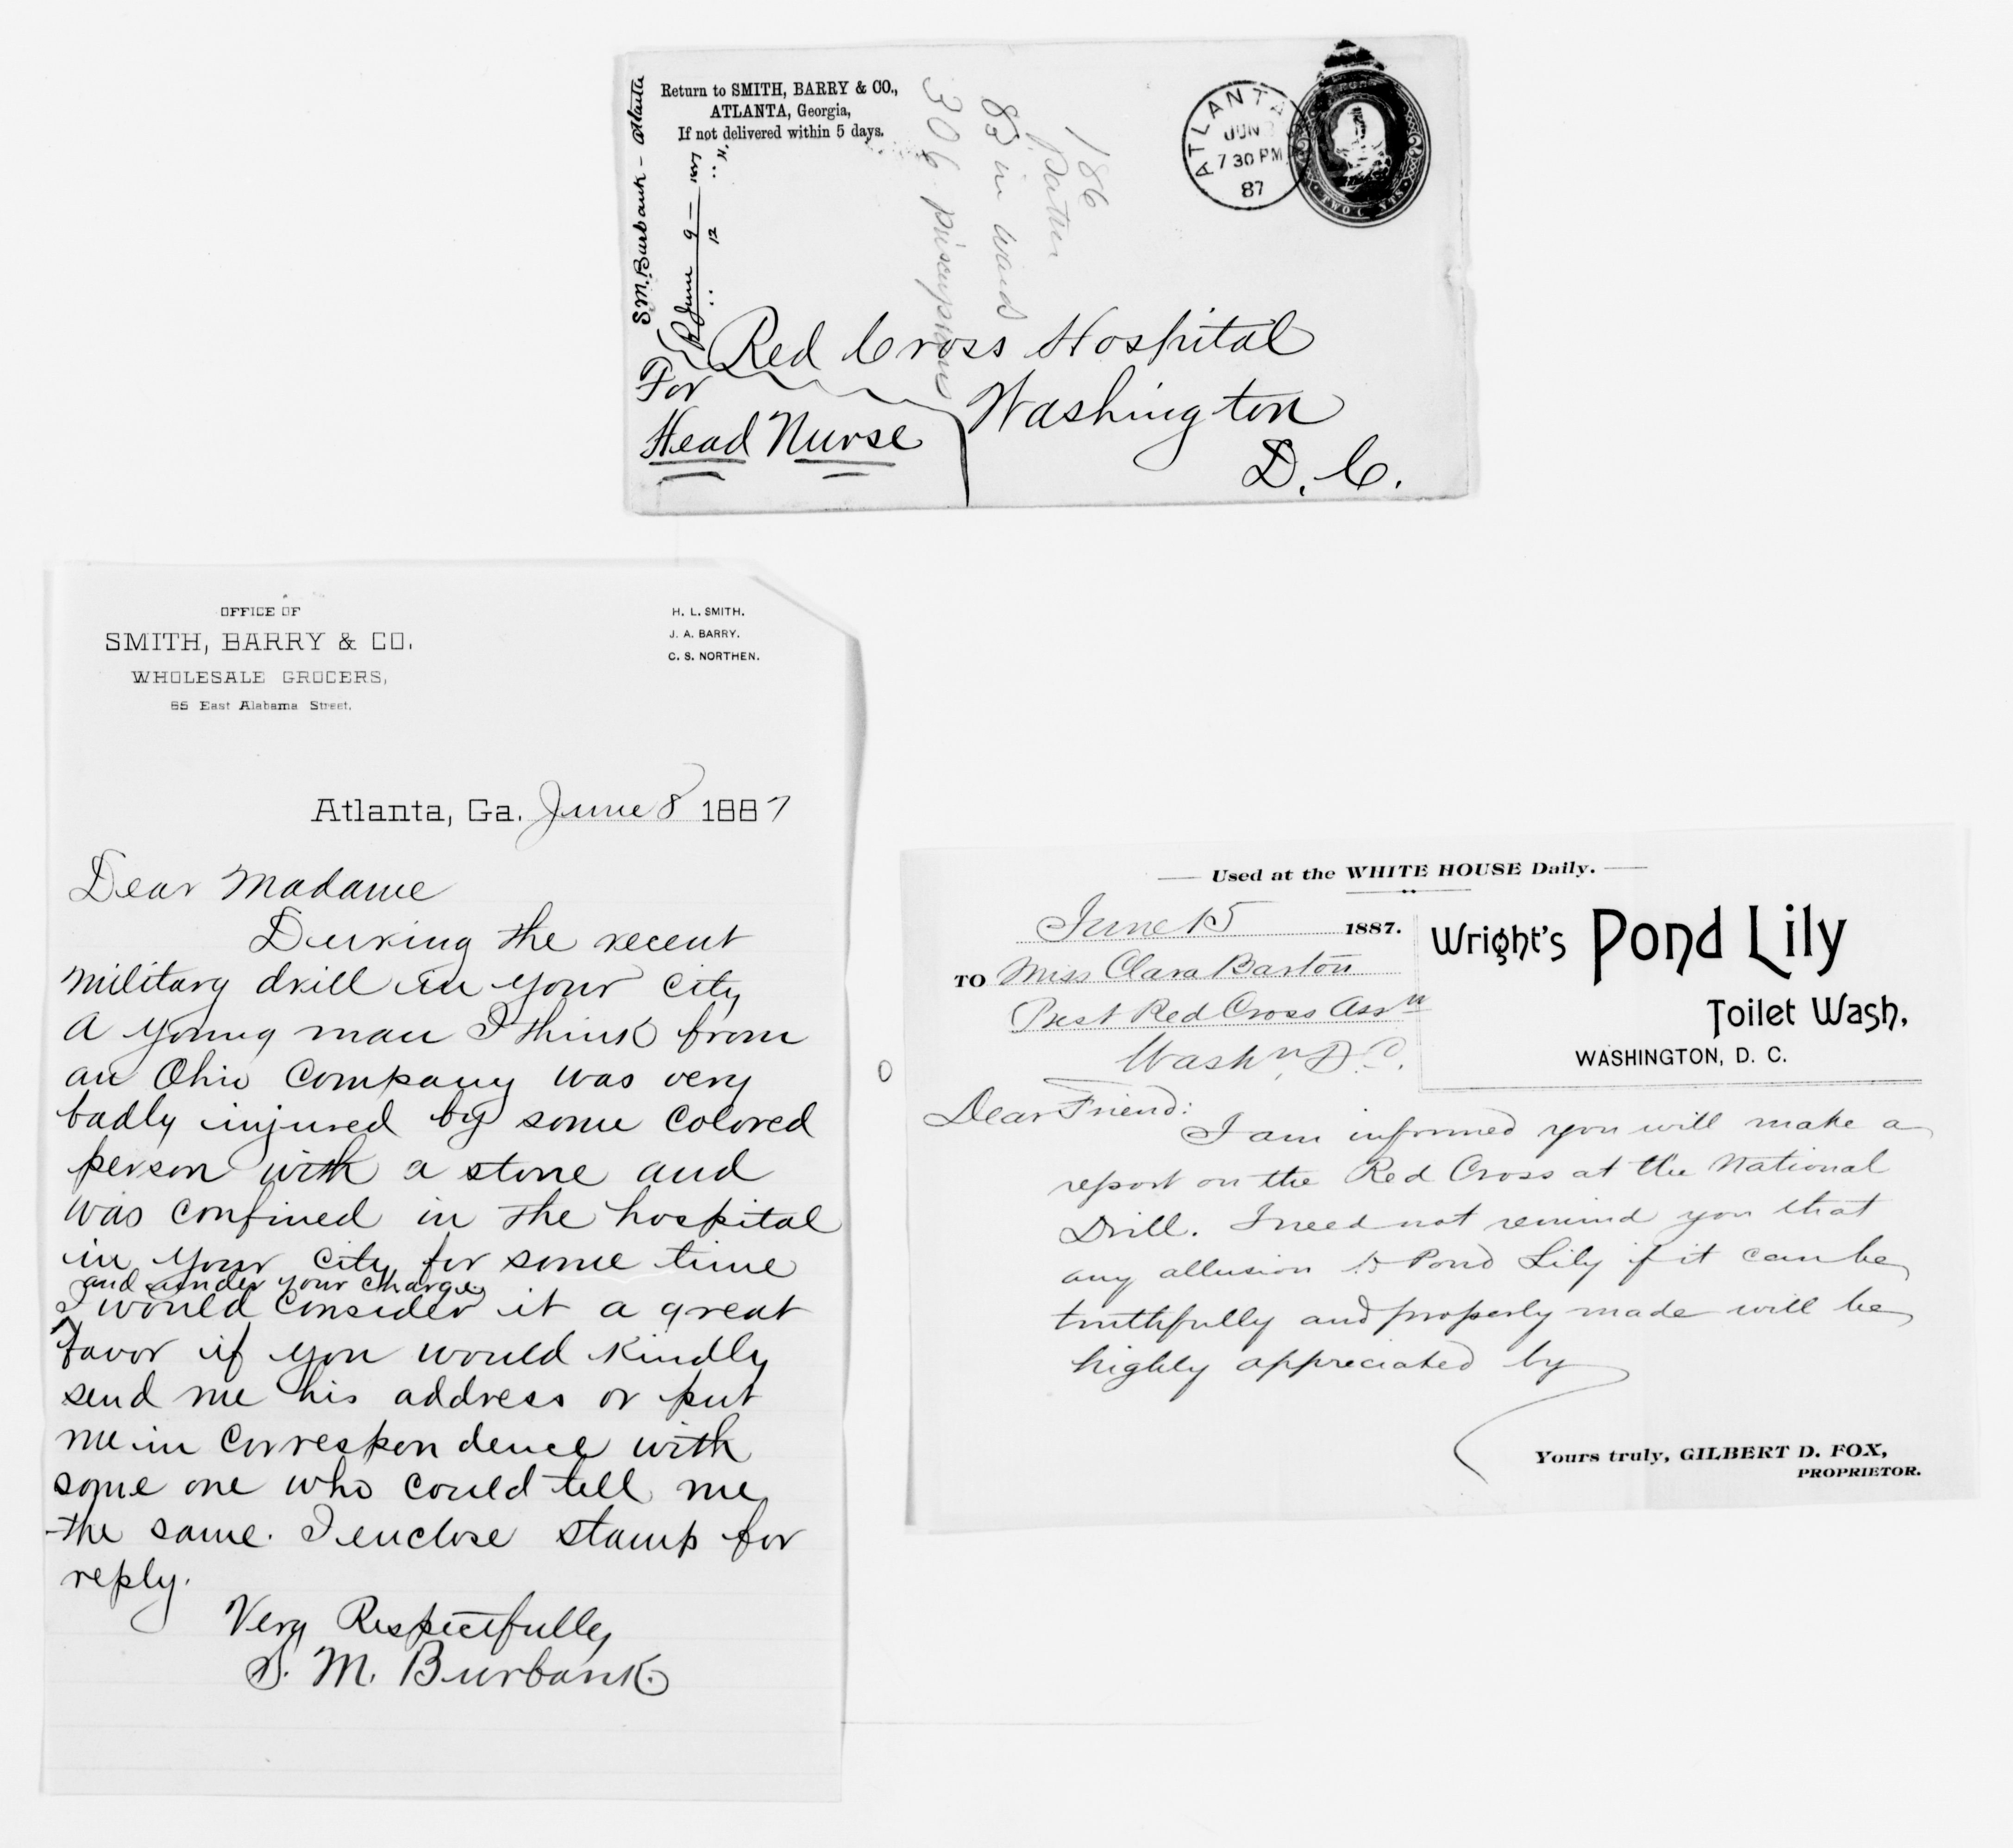 Return to SMITH, BARRY & CO.,
ATLANTA, Georgia,
If not delivered within 5 days.
S. M. Burbank - Atlanta
R June 9 - 1887
" 12 " "
186
83 in ward
306 priscriptions
ATLANTA
JUN
7 30 PM
87
TWO CENTS
Red Cross Hospital
Washington
D. C.
For
Head Nurse
OFFICE OF
SMITH, BARRY & CO.
WHOLESALE GROCERS,
55 East Alabama Street.
H. L. SMITH.
J. A. BARRY.
C. S. NORTHEN.
Atlanta, Ga. June 8 1887
Dear Madame
During the recent
military drill in your city
a young man I think from
an Ohio Company was very
badly injured by some colored
person with a stone and
was confined in the hospital
in your city for some time
and under your charge
I would consider it a great
favor if you would kindly
send me his address or put
me in correspondence with
some one who could tell me
the same. I enclose stamp for
reply.
Very Respectfully
S. M. Burbank.
Used at the WHITE HOUSE Daily.
June 15 1887.
TO Miss Clara Barton
Prest Red Cross Assn
Washn. D. C.
Wright's Pond Lily
Toilet Wash,
WASHINGTON, D. C.
Dear Friend:
I am informed you will make a
report on the Red Cross at the National
Drill. I need not remind you that
any allusion to Pond Lily if it can be
truthfully and properly made will be
highly appreciated by
Yours truly, GILBERT D. FOX,
PROPRIETOR.